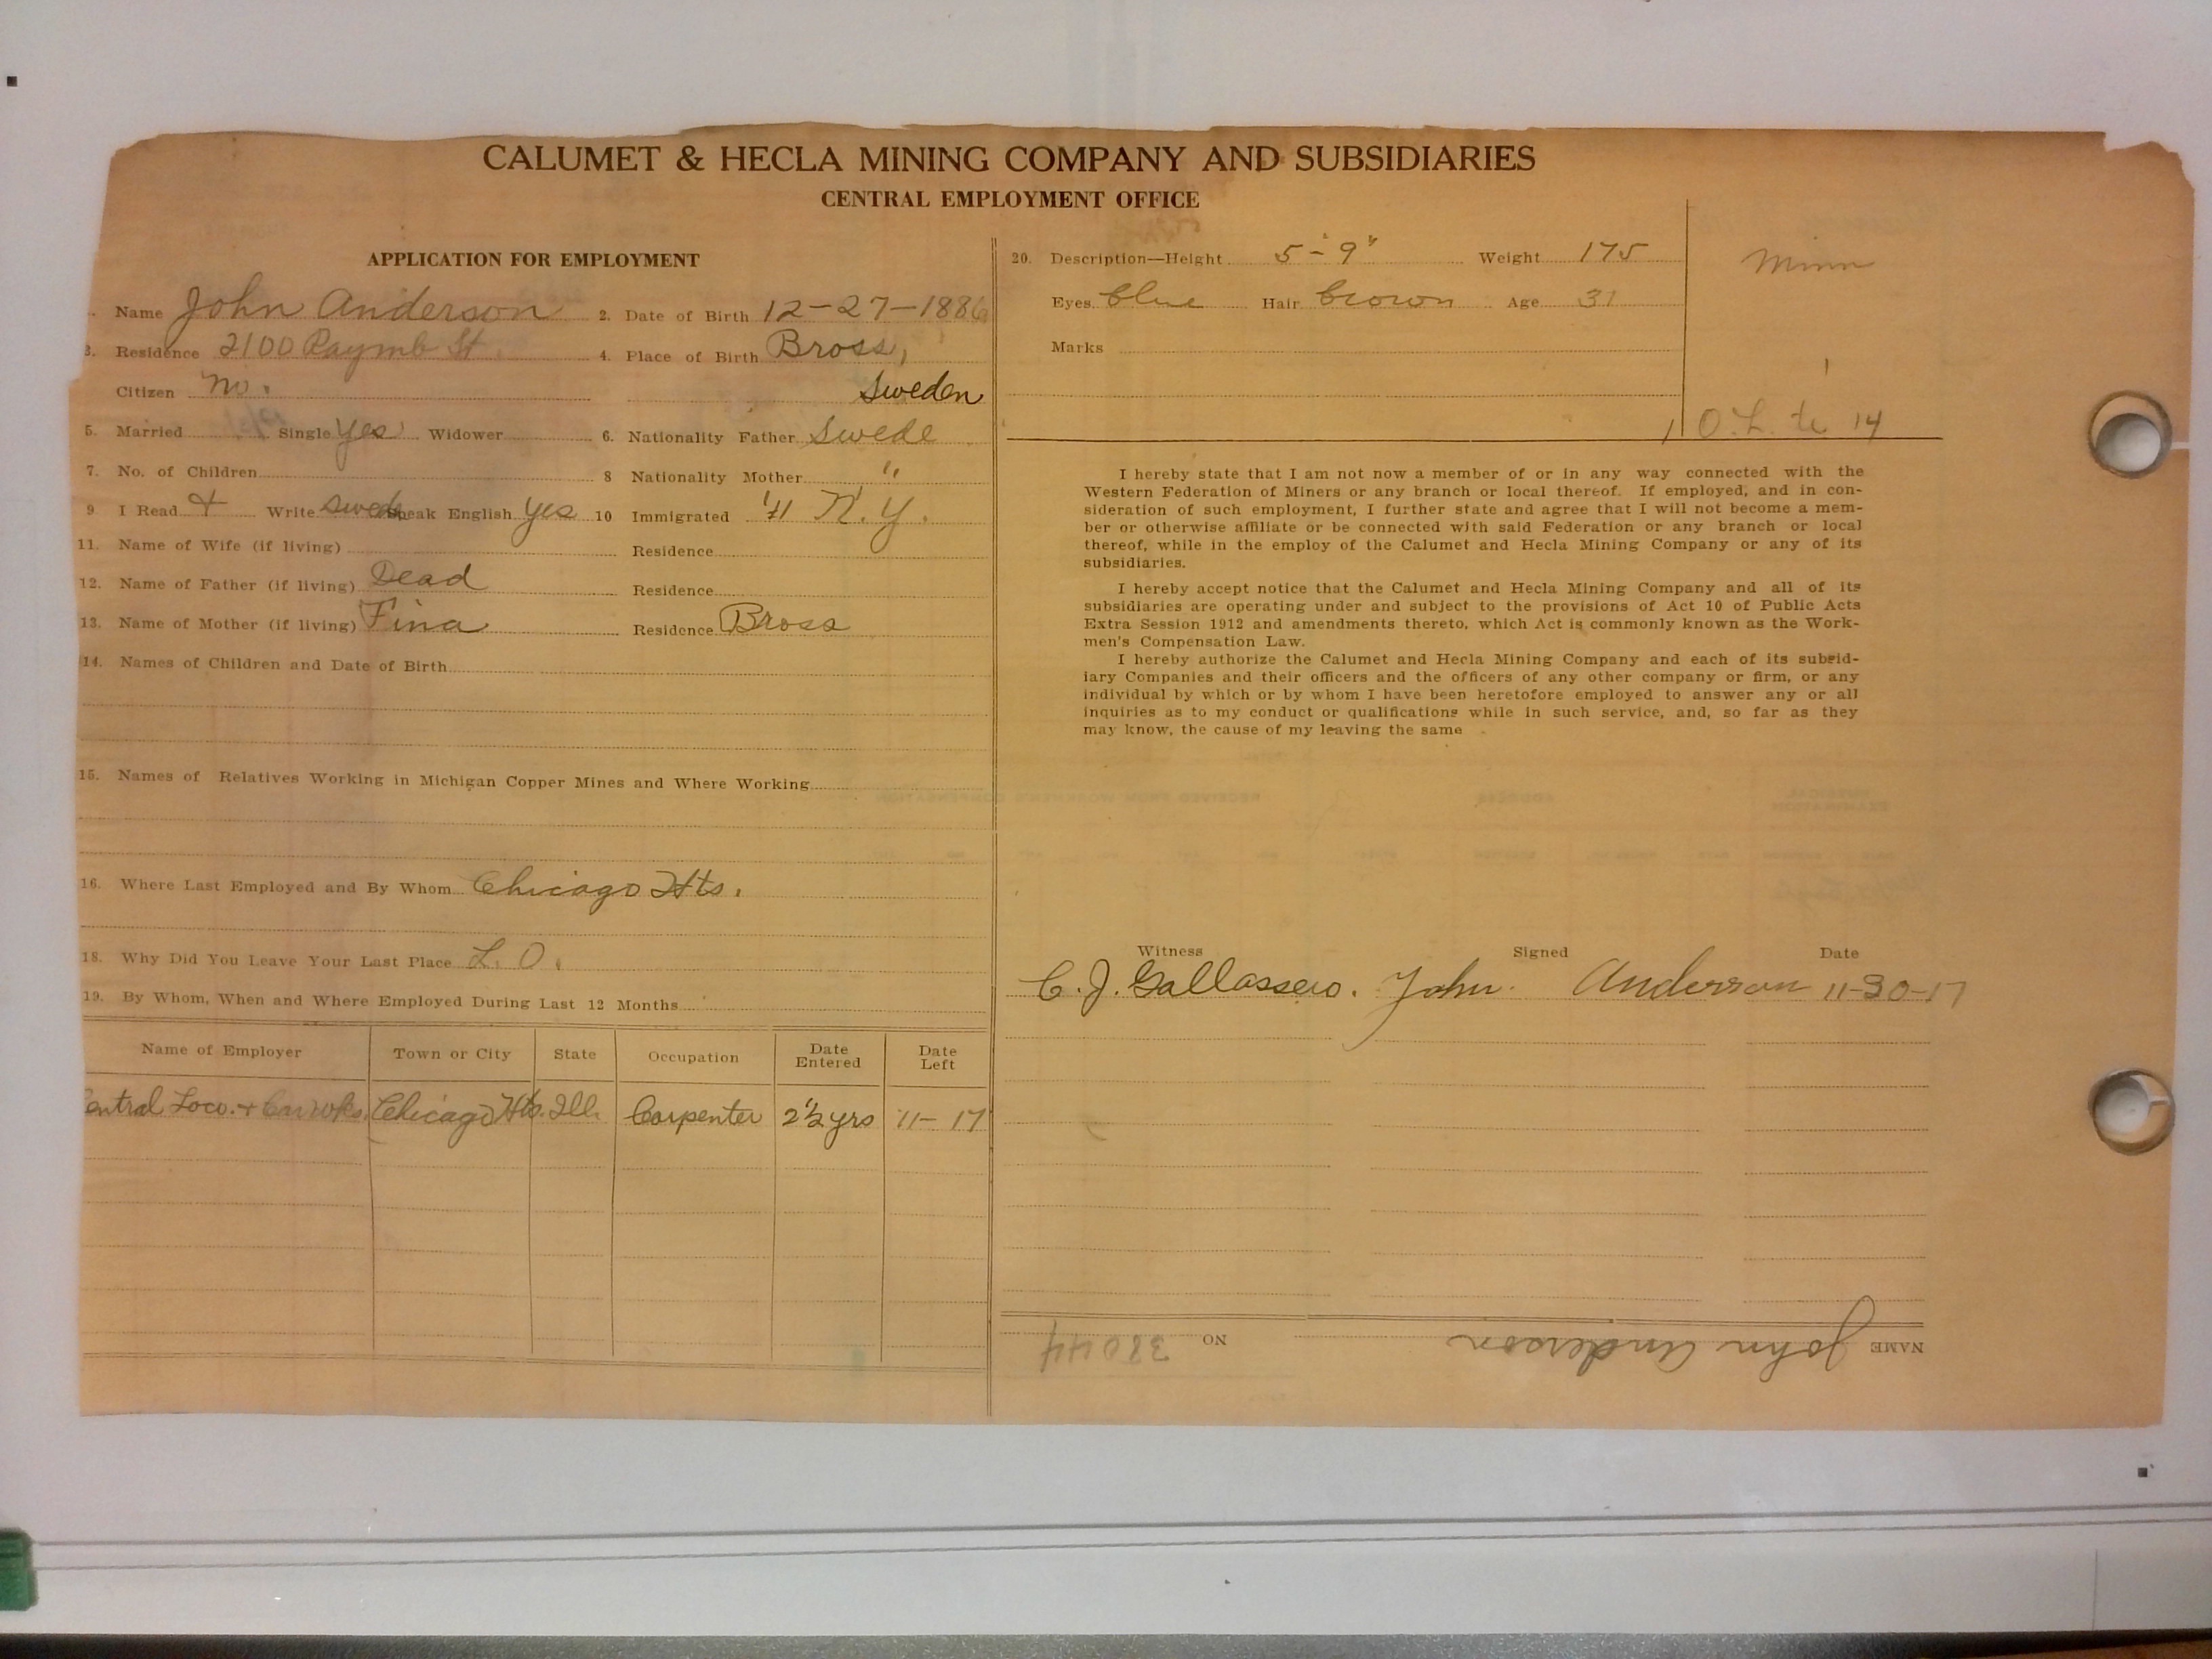 CALUMET & HECLA MINING COMPANY AND SUBSIDIARIES
CENTRAL EMPLOYMENT OFFICE
APPLICATION FOR EMPLOYMENT
Name John Anderson 2. Date of Birth 12-27-1886
3. Residence 2100 Raymb St. 4. Place of Birth Bross,
Citizen no. Sweden
5. Married Single yes Widower 6. Nationality Father Swede
7. No. of Children 8 Nationality Mother "
9. I Read + Write Swede Speak English yes 10 Immigrated '11 N.Y.
11. Name of Wife (if living) Residence
12. Name of Father (if living) Dead Residence
13. Name of Mother (if living) Fina Residence Bross
14. Names of Children and Date of Birth
15. Names of Relatives Working in Michigan Copper Mines and Where Working
16. Where Last Employed and By Whom Chicago Hts.
18. Why Did You Leave Your Last Place L. O.
19. By Whom, When and Where Employed During Last 12 Months
Name of Employer Town or City State Occupation Date Entered Date Left
Central Loco. + Car Wks. Chicago Hts. Ill. Carpenter 2½ yrs 11-17
20. Description—Height 5'-9" Weight 175
Eyes blue Hair brown Age 31
Marks
Minn
O.L. to 14
I hereby state that I am not now a member of or in any way connected with the
Western Federation of Miners or any branch or local thereof. If employed, and in con-
sideration of such employment, I further state and agree that I will not become a mem-
ber or otherwise affiliate or be connected with said Federation or any branch or local
thereof, while in the employ of the Calumet and Hecla Mining Company or any of its
subsidiaries.
I hereby accept notice that the Calumet and Hecla Mining Company and all of its
subsidiaries are operating under and subject to the provisions of Act 10 of Public Acts
Extra Session 1912 and amendments thereto, which Act is commonly known as the Work-
men's Compensation Law.
I hereby authorize the Calumet and Hecla Mining Company and each of its subsid-
iary Companies and their officers and the officers of any other company or firm, or any
individual by which or by whom I have been heretofore employed to answer any or all
inquiries as to my conduct or qualifications while in such service, and, so far as they
may know, the cause of my leaving the same
Witness Signed Date
C. J. Gallassero. John Anderson 11-30-17
NAME John Anderson NO 38044